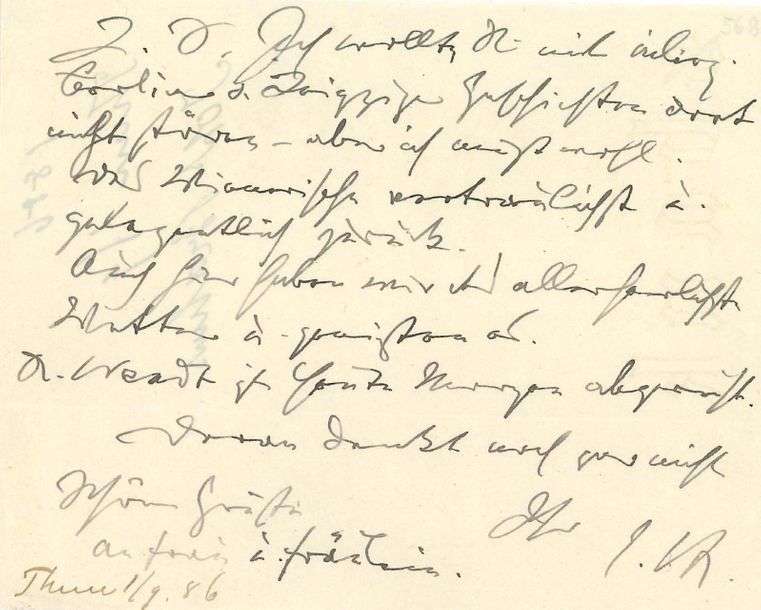 Ich wollte Sie mit inlieg.
Berliner u. Leipziger Geschichten dort
nicht stören – aber ich muß wohl.
Das Wienerische vertraulichst u.
gelegentlich zurück.
Auch hier haben wir das allerherrlichste
Wetter u. genießen es.
Dr. Wendt ist heute Morgen abgereist.
Daran denkt noch gar nicht
Ihr J. Br.
Schöne Grüße
an Frau u. Fräulein.
Thun 1/9. 86
568